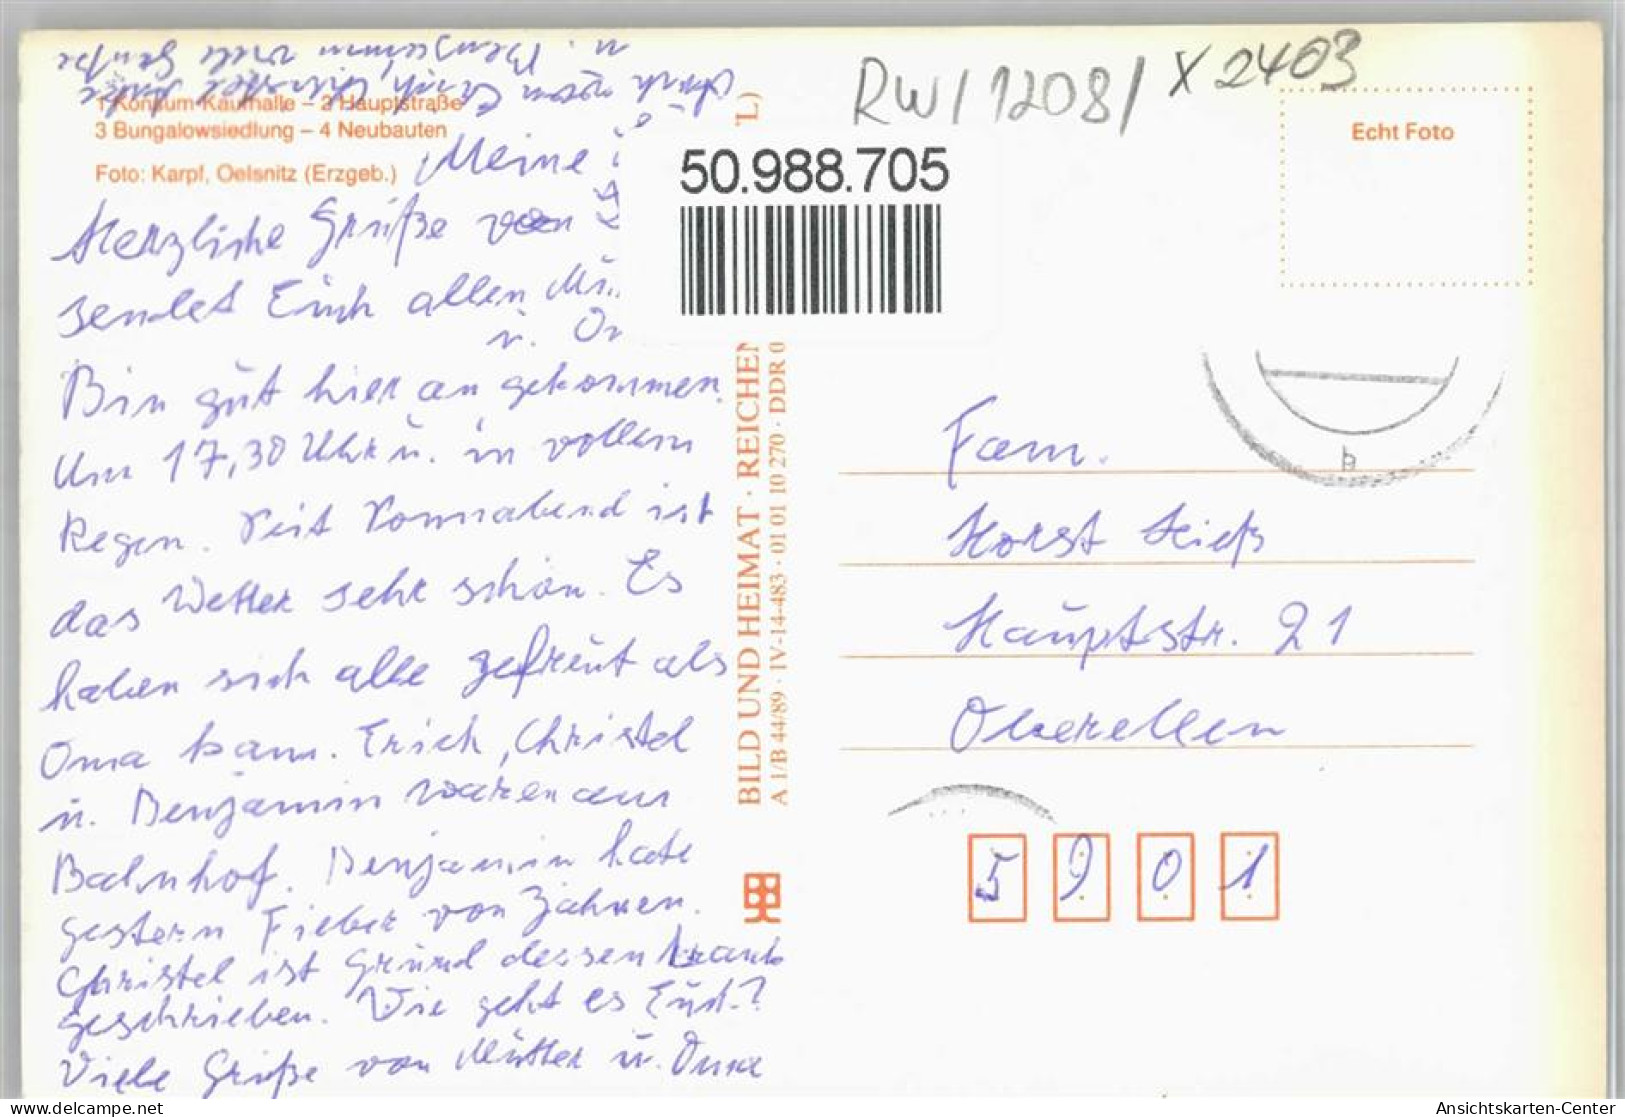 u. Benjamin viele Grüße
Auch von Erich, Christel
1 Konsum-Kaufhalle – 2 Hauptstraße
3 Bungalowsiedlung – 4 Neubauten
Foto: Karpf, Oelsnitz (Erzgeb.)
Meine
Herzliche Grüße von
sendet Euch allen
u.
Bin gut hier an gekommen.
Um 17,30 Uhr u. in vollem
Regen. Seit Sonnabend ist
das Wetter sehr schön. Es
haben sich alle gefreut als
Oma kam. Erich, Christel
u. Benjamin waren am
Bahnhof. Benjamin hate
gestern Fieber von Zähnen.
Christel ist Grund dessen krank
geschrieben. Wie geht es Euch?
Viele Grüße von Mutter u. Oma
RW/1208/ X2403
50.988.705
BILD UND HEIMAT · REICHEN
A 1/B 44/89 · IV-14-483 · 01 01 10 270 · DDR 0
Echt Foto
b
Fam.
Horst Hieß
Hauptstr. 21
Oberellen
5 9 0 1
Ansichtskarten-Center